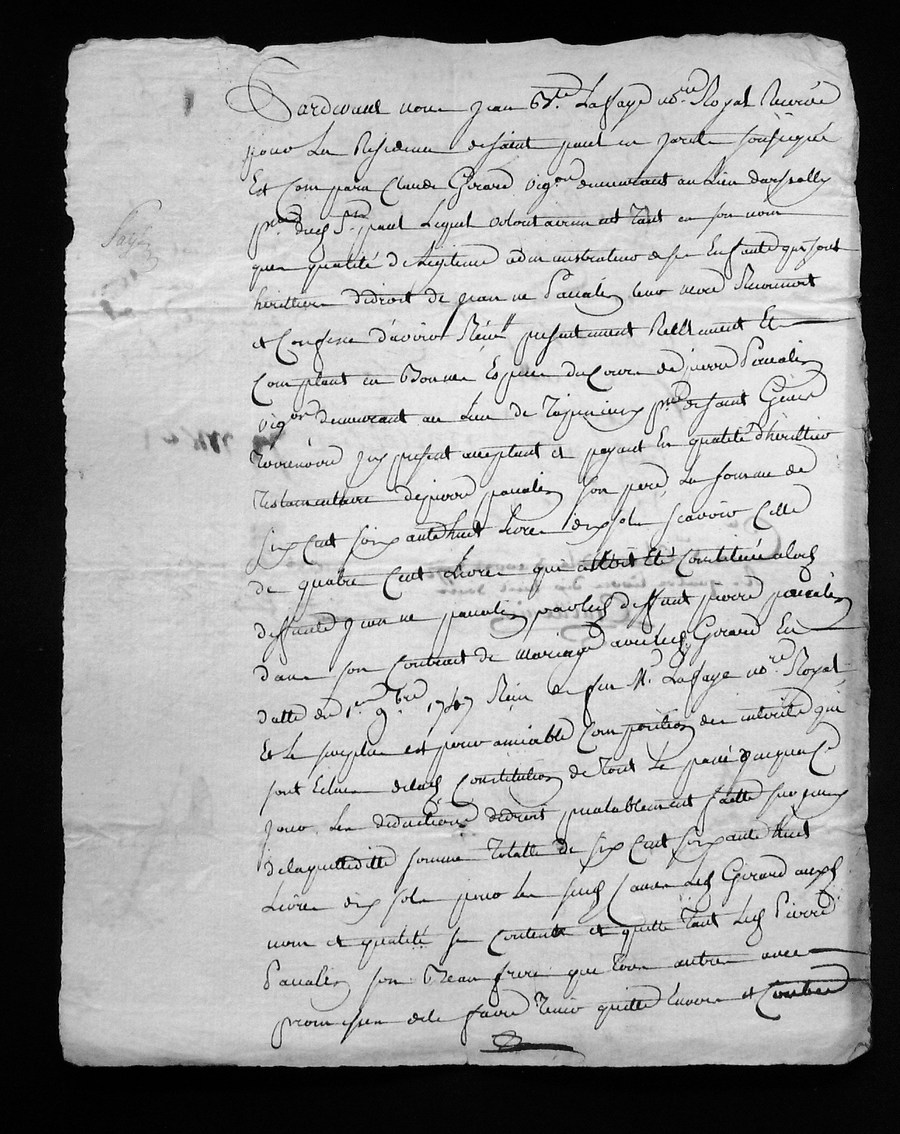 Pardevant nous Jean Bte Laffaye nore Royal Reservé
pour La Residence de saint paul en Jarest soussigné
Est Comparu Claude Girard vigon demeurant au Lieu
psse dud St paul Lequel volontairement tant en son nom
quen qualité de Legitime administrateur de ses Enfants qui sont
heritiers de droit de Jeanne leur mere
et Confesse d'avoir Receu presentement Reellement Et
Comptant en Bonnes Especes du Cours de pierre
vigon demeurant au Lieu de psse de saint Genis
Terrenoire Icy present acceptant et payant En qualité d'heritier
testamentaire de pierre son pere La somme de
six Cent soixante huit Livres dix sols scavoir Celle
de quatre Cent Livres qui avoit Eté Constituée a lad
deffunte Jeanne par led deffunt pierre
dans son Contrat de mariage avec led Girard En
datte du 1er 9bre 1747 Receu de feu Me Laffaye nore Royal
Et le surplus est pour amiable Composition des interets qui
sont Echus de lad Constitution de tout le passé Jusqua Ce
Jour, Les deductions de droit prealablement faittes
de laquelle ditte somme Totalle de six Cent soixante huit
Livres dix sols pour les susd Causes Led Girard auxd
nom et qualité se Contente et quitte tant Led Pierre
son Beau frere que tous autres avec
promesse de le faire tenir quitte Envers et Contre